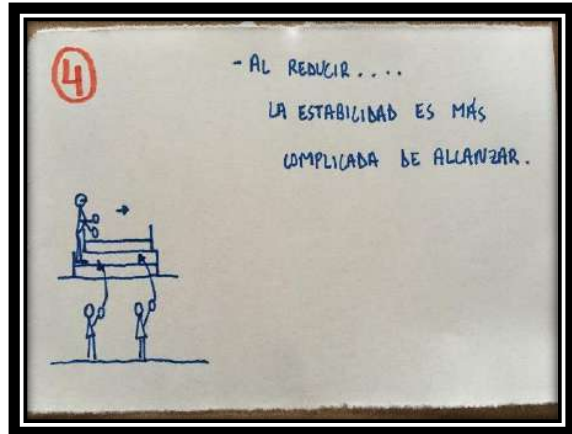 4
- AL REDUCIR....
LA ESTABILIDAD ES MÁS
COMPLICADA DE ALCANZAR.